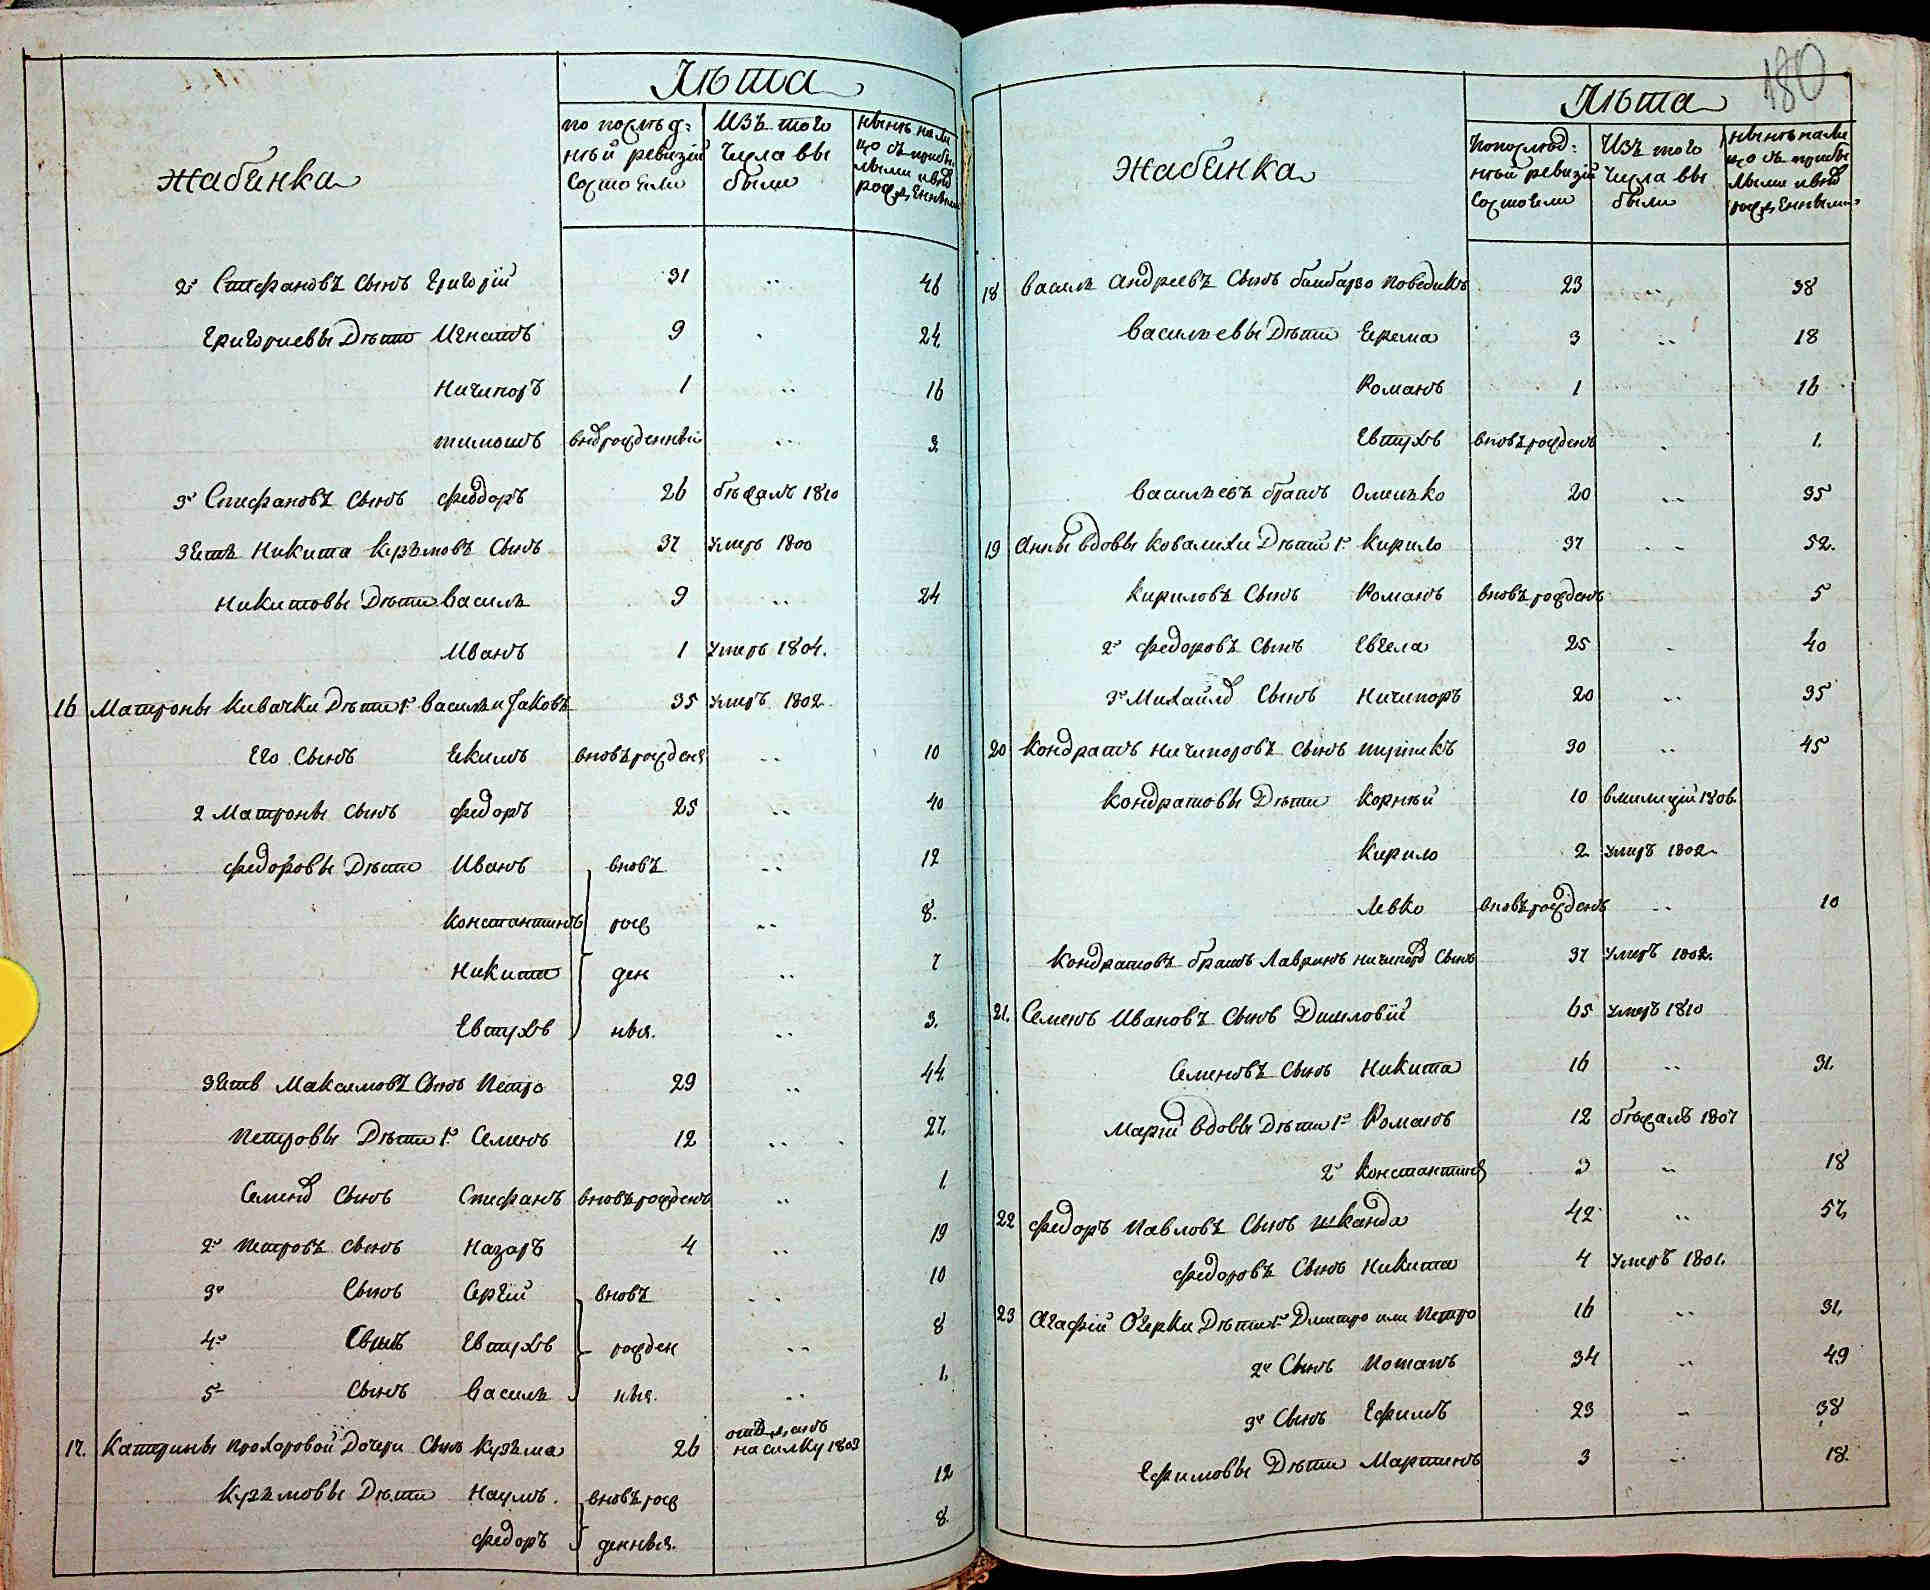 Лѣта
жабинка
по послѣд:
нѣй ревизіи
состояли
Изъ того
числа вы
были
нынѣ нали
цо съ прибы
лыми и внов
рожденными
2е Стефановъ Сынъ Григорій 31 .. 46
Григориевы Дѣти Игнатъ 9 . 24
Ничипоръ 1 .. 16
тимошъ внов рожденный .. 3.
3е Стефановъ Сынъ феодоръ 26 бѣжалъ 1810
Зять Никита Кузьмовъ Сынъ 37 умеръ 1800
Никитовы Дѣти Василь 9 .. 24
Иванъ 1 умеръ 1804.
16 Матроны Кивачки Дѣти 1е Василь и Јаковъ 35 умеръ 1802
Его Сынъ Екимъ вновь рожденъ .. 10
2 Матроны Сынъ федоръ 25 .. 40
федоровы Дѣти Иванъ вновь .. 12
Константинъ рож .. 8.
Никита ден .. 7
Евтухъ ныя. .. 3.
Зять Максимовъ Сынъ Петро 29 .. 44
Петровы Дѣти 1е Семенъ 12 .. 27.
Семенов Сынъ Стефанъ вновь рожденъ .. 1.
2е Петровъ Сынъ Назаръ 4 .. 19
3е Сынъ Сергій вновь .. 10
4е Сынъ Евтухъ рожден .. 8
5е Сынъ Василь ныя. .. 1.
17. Катрины Прохоровой Дочери Сынъ Кузьма 26 отданъ
на силку 1803
Кузьмовы Дѣти Наумъ вновь рож 12
федоръ денныя. 8.
180
Лѣта
жабинка
по послѣд:
нѣй ревизіи
состояли
Изъ того
числа вы
были
нынѣ нали
цо съ прибы
лыми и внов
рожденными
18 Василь Андреевъ Сынъ бамбарзо Победикъ 23 .. 38
Васильевы Дѣти Ерема 3 .. 18
Романъ 1 16
Евтухъ вновь рожденъ . 1.
Васильевъ братъ Омелько 20 .. 35
19 Анны вдовы Ковалихи Дѣти 1е Кирило 37 .. 52.
Кириловъ Сынъ Романъ вновь рожденъ 5
2е федоровъ Сынъ Евгела 25 . 40
3е Михайлов Сынъ Ничипоръ 20 .. 35
20 Кондратъ Ничипоровъ Сынъ 30 .. 45
Кондратовы Дѣти Корнѣй 10 в милиціи 1806.
Кирило 2 умеръ 1802
Левко вновь рожденъ .. 10
Кондратовъ братъ Лавринъ Ничипоров Сынъ 37 умеръ 1802.
21. Семенъ Ивановъ Сынъ Дишловый 65 умеръ 1810
Семеновъ Сынъ Никита 16 .. 31.
Маріи вдовы Дѣти 1е Романъ 12 бѣжалъ 1807
2е Константинъ 3 .. 18
22 федоръ Павловъ Сынъ шканда 42 .. 57,
федоровъ Сынъ Никита 4 умеръ 1801.
23 Агафіи Очерки Дѣти 1е Дмитро или Петро 16 .. 31,
2е Сынъ Потапъ 34 .. 49
3е Сынъ Ефимъ 23 .. 38
Ефимовы Дѣти Мартинъ 3 .. 18.